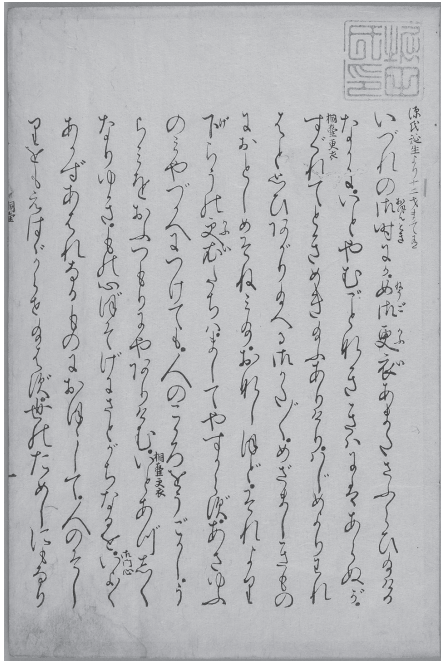 源氏誕生より十二才まて有
いづれの御時にか。女御更衣あまたさふらひ給ける
なかに。いとやむごとなききはにはあらぬが。
桐壺更衣
すぐれてときめき給ふありけり。はじめよりわれ
はと思ひあがり給へる御かた〴〵。めざましきもの
におとしめそねみ給。おなじほど。それより
下らうの更衣たちは。ましてやすからず。あさゆふ
のみやづかへにつけても。人のこころをうごかし。う
桐壺更衣
らみをおふつもりにやありけむ。いとあづしく
御門心
なりゆき。もの心ぼそげにさとがちなるを。いよ〳〵
あかずあはれなるものにおぼほして。人のそし
りをもえはばからせ給はず。世のためしにもなり
桐壺